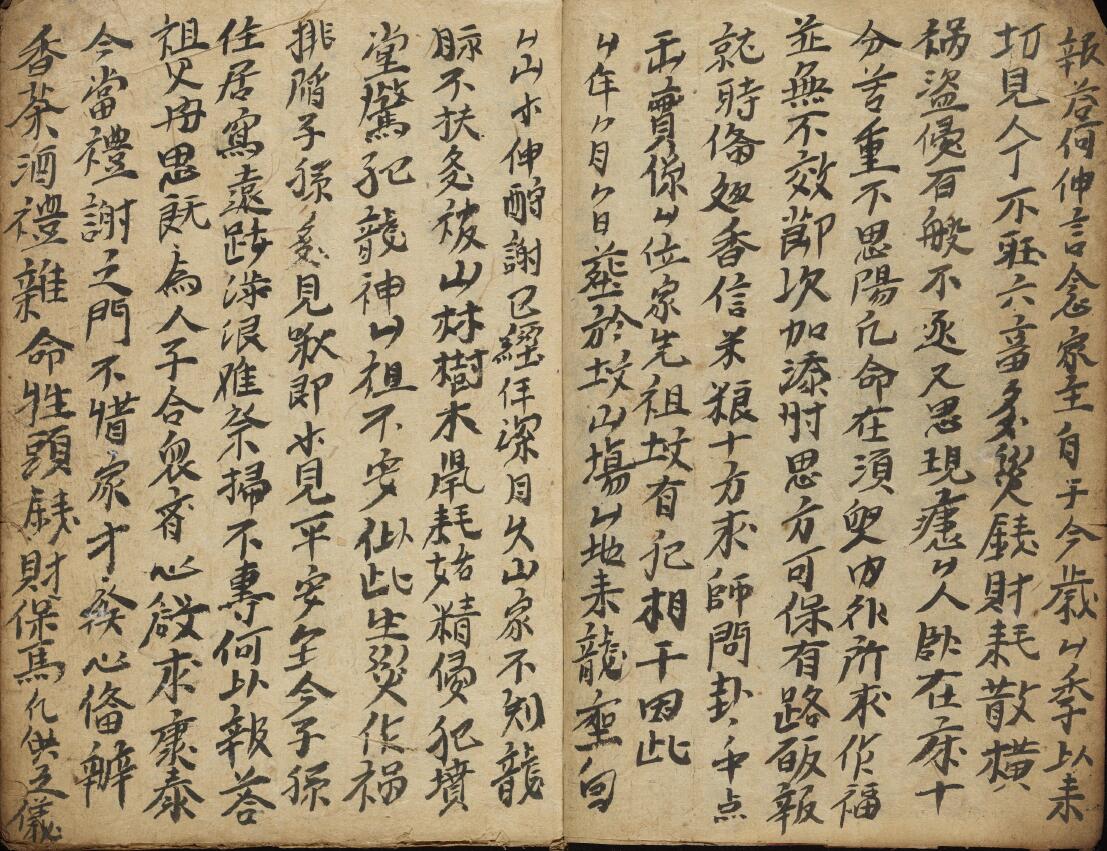 報荅何伸言念家主自于今歲厶季以来
切見人丁不旺六畜多災錢財耗散橫
禍盜侵百般不丞又思現患厶人卧在床十
分苦重不思陽凡命在須臾內外所求作福
並無不效節次加添忖思方可保有路敀報
就時俻廹香信米粮十方求師問卦卦中点
出實係厶位家先祖坟有犯相干因此
厶年厶月厶日塟於坟山塲厶地来龍堂向
厶山亦伸酧謝已經年深月久山家不利龍
脉不扶多被山林樹木鼠耗妖精侵犯墳
堂驚犯龍神山祖不安似此生災作禍
排陷子孫多見獻即亦見平安全今子孫
住居寫遠跋涉艰难祭掃不專何以報荅
祖父母思既為人子合衆齊心啟求康泰
今當禮謝之門不惜家才發心俻辦
香茶酒禮雜命牲頭錢財保馬凡供之儀